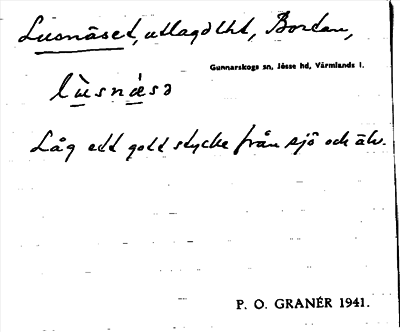 Lusnäset, utlagd lht, Bortan,
Gunnarskogs sn, Jösse hd, Värmlands l.
lùsnä̀sə
Låg ett gott stycke från sjö och älv.
P. O. GRANÉR 1941.